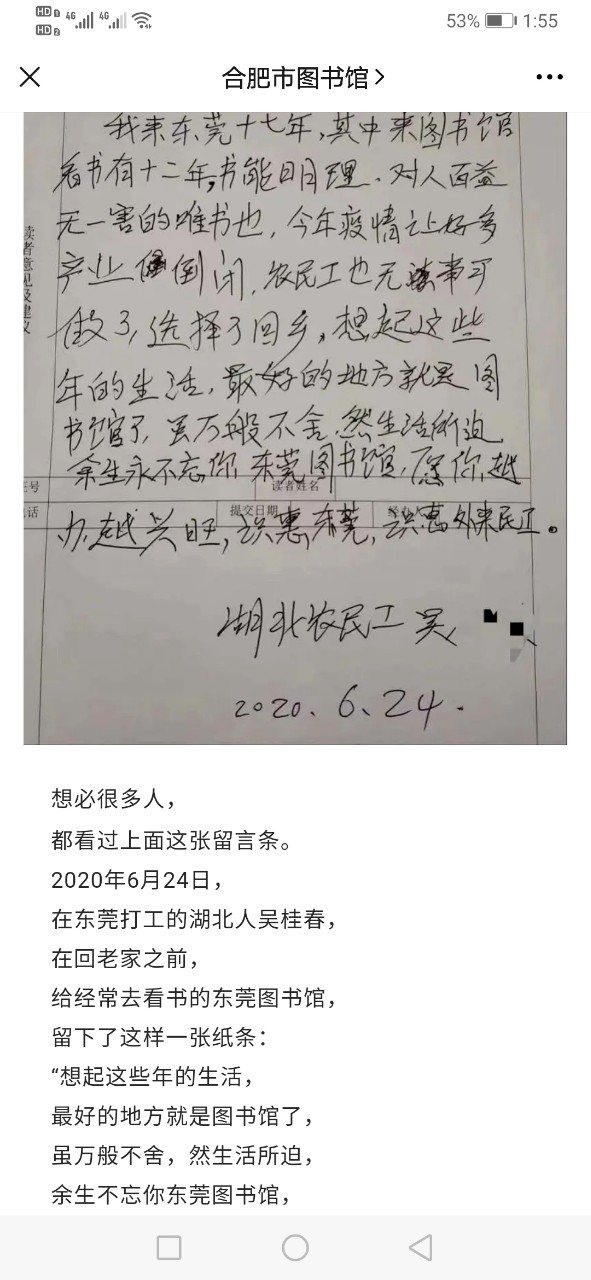 HD 1 4G 4G
HD 2
53% 1:55
合肥市图书馆
我来东莞十七年,其中来图书馆
看书有十二年,书能明理、对人百益
无一害的唯书也,今年疫情让好多
读者意见及建议
产业倒闭,农民工也无事可
做了,选择了回乡,想起这些
年的生活,最好的地方就是图
书馆了,虽万般不舍,然生活所迫
余生永不忘你东莞图书馆,愿你越
证号 读者姓名
话 提交日期
办越兴旺,识惠东莞,识惠外来民工。
湖北农民工 吴
2020、6、24.
想必很多人，
都看过上面这张留言条。
2020年6月24日，
在东莞打工的湖北人吴桂春，
在回老家之前，
给经常去看书的东莞图书馆，
留下了这样一张纸条：
“想起这些年的生活，
最好的地方就是图书馆了，
虽万般不舍，然生活所迫，
余生不忘你东莞图书馆，